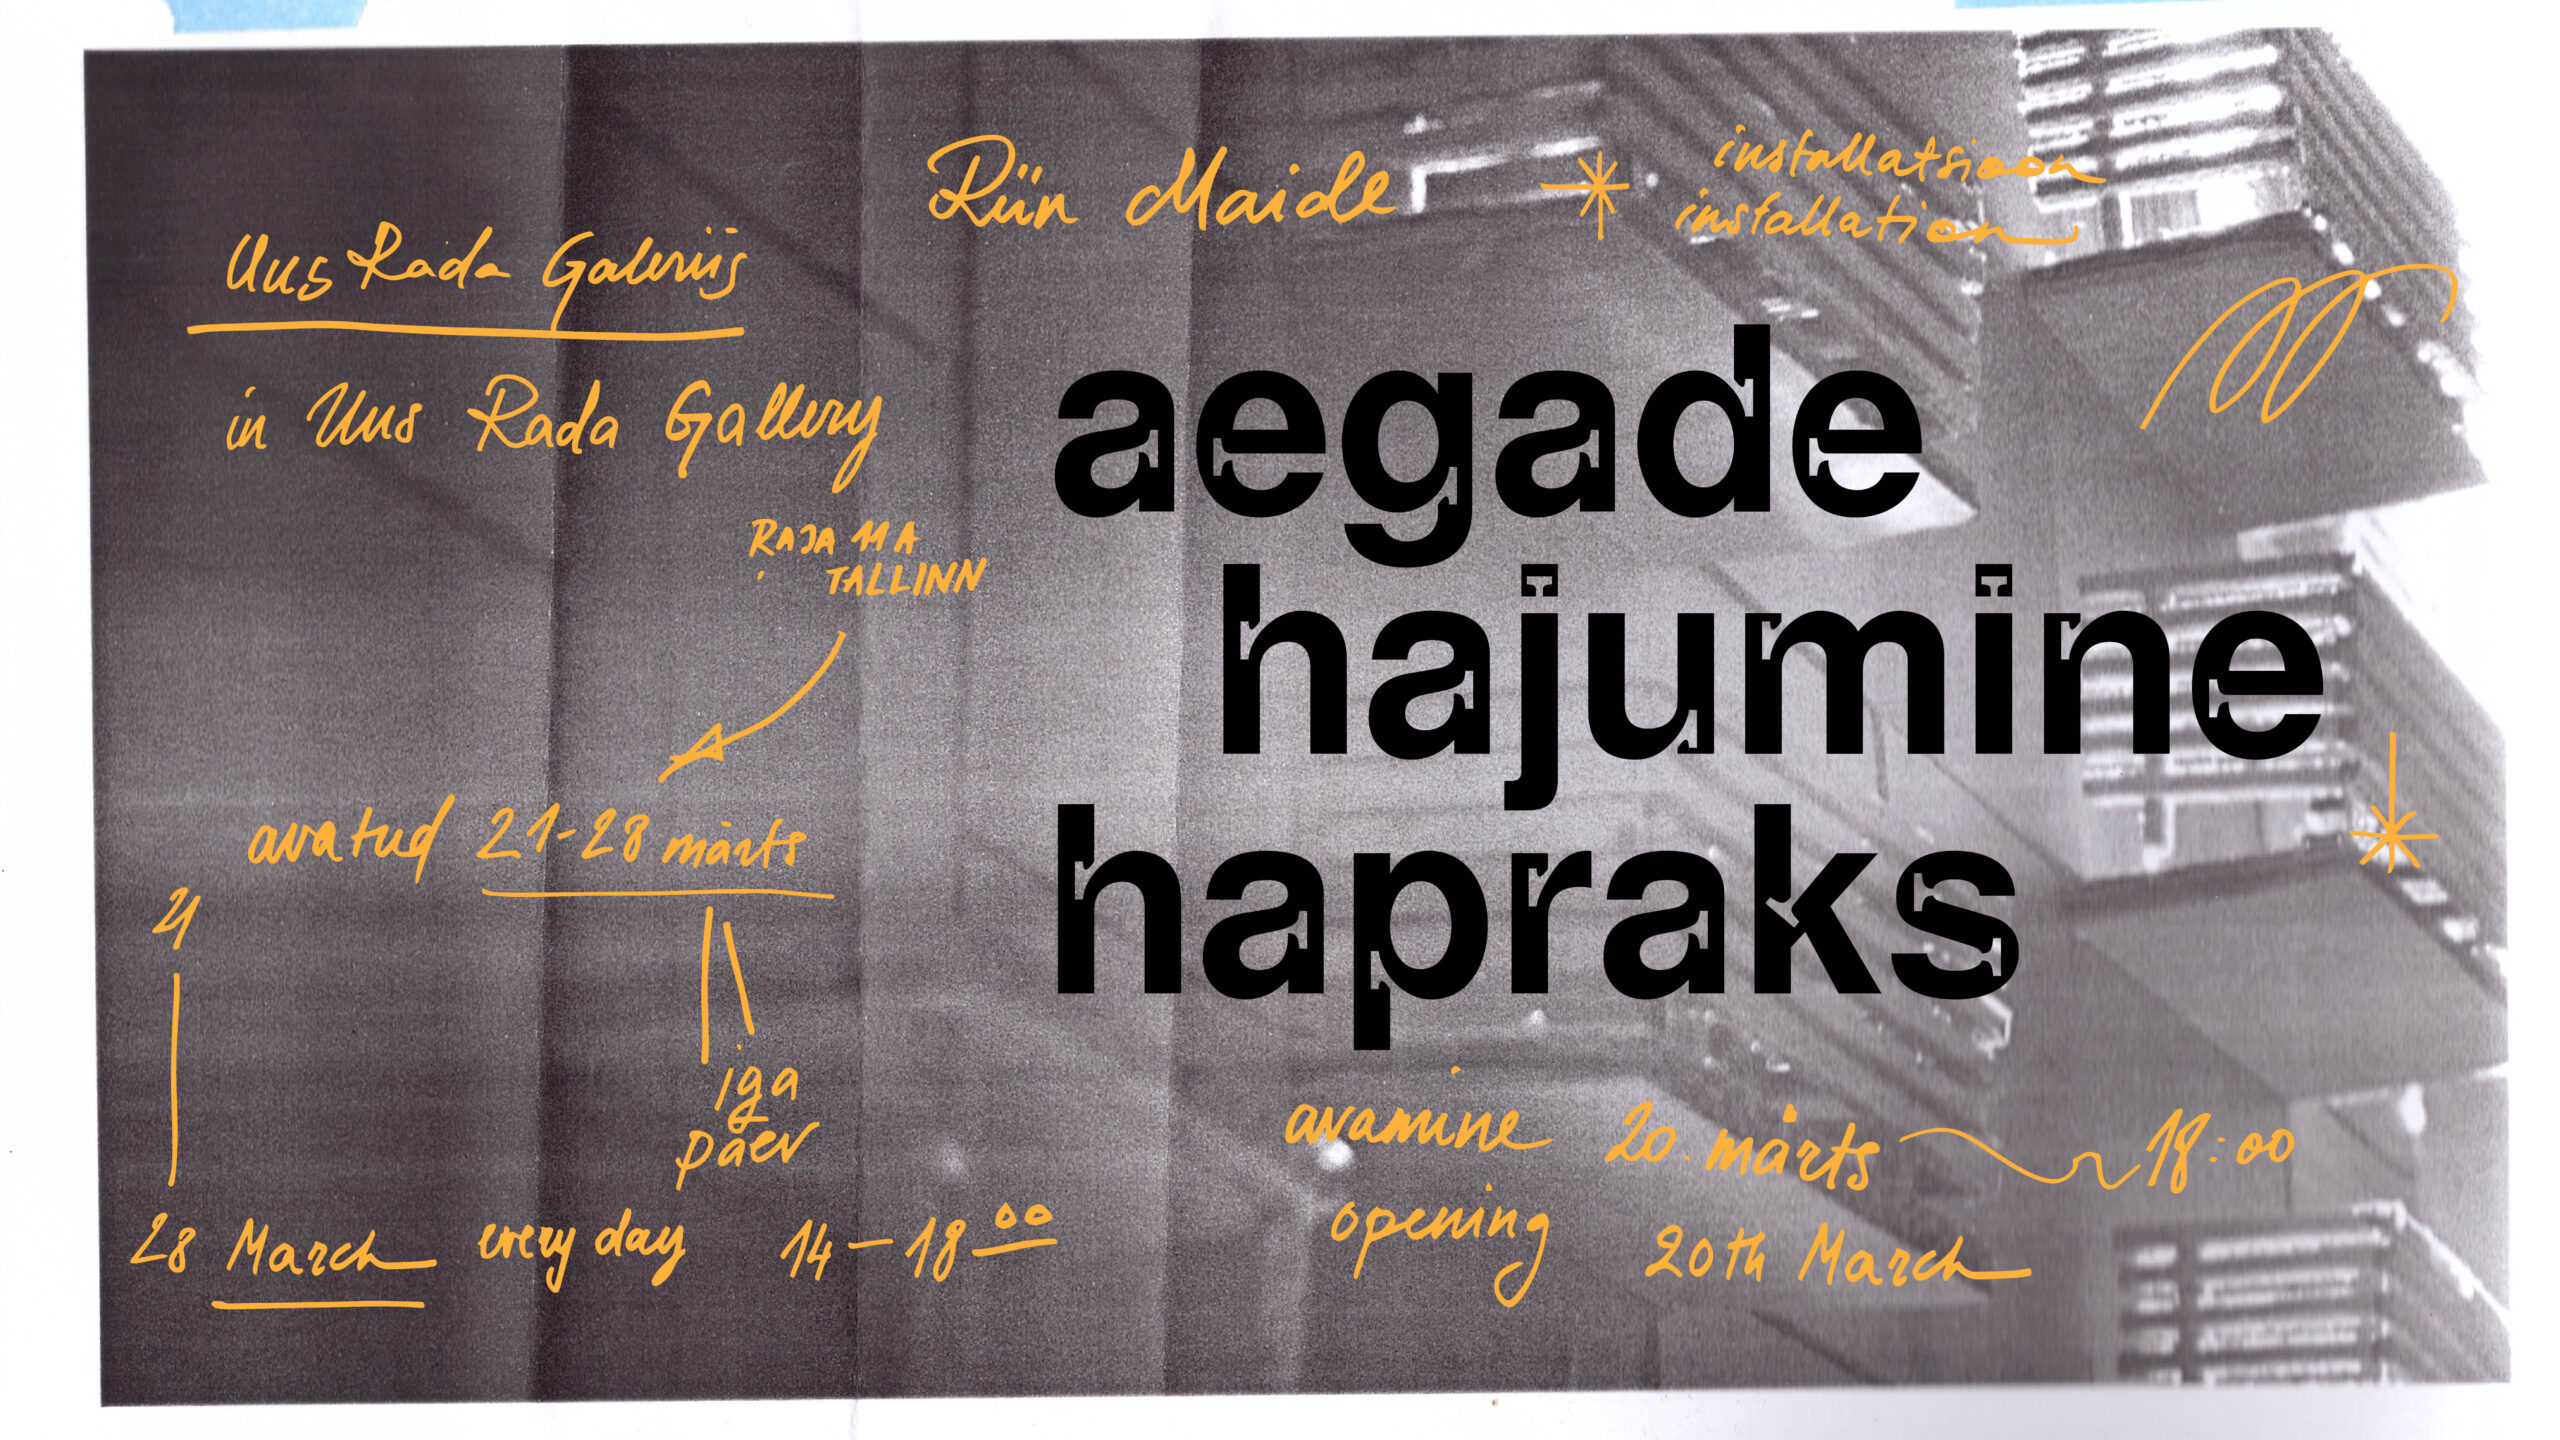 Riin Maide * installatsioon
installation
Uus Rada Galeriis
in Uus Rada Gallery
RAJA 11A
TALLINN
aegade
hajumine
hapraks
avatud 21-28 märts
iga
päev
21
28 March every day 14-18 00
avamine 20. märts 18:00
opening 20th March